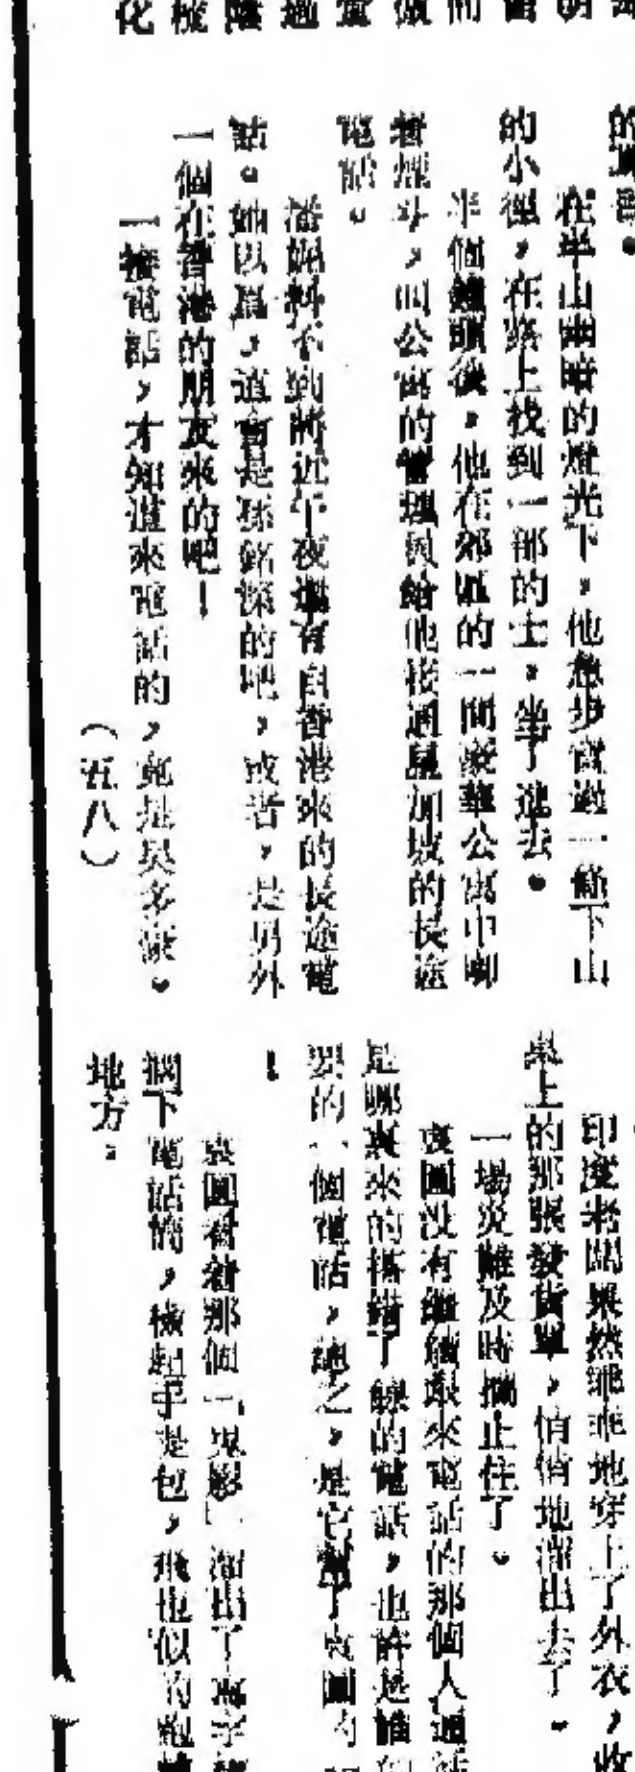 在半山幽暗的燈光下，他急步穿過一條下山
的小徑，在路上找到一部的士，坐了進去。
半個鐘頭後，他在郊區的一間豪華公寓中啣
着煙斗，叫公寓的管理員給他接通星加坡的長途
電話。
潘妮料不到將近午夜還有自香港來的長途電
話。她以爲，這會是孫銘深的吧，或者，是另外
一個在香港的朋友來的吧！
一接電話，才知道來電話的，竟是吳多豪。
（五八）
印度老闆果然乖乖地穿上了外衣，收
桌上的那張發貨單，悄悄地溜出去了。
一場災難及時攔止住了。
袁圓没有繼續跟來電話的那個人通話
是哪裏來的搭錯了線的電話，也許是誰
的一個電話，總之，是它幫了袁圓的
！
袁圓看着那個「鬼影」溜出了寫字
擱下電話筒，檢起手提包，飛也似的跑
地方。